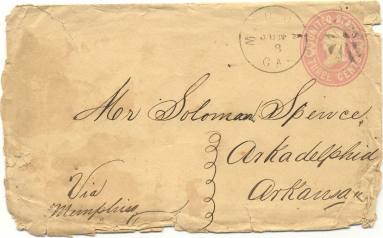 UNITED STATES
THREE CENTS
JUN
8
GA.
Mr Soloman Spence
Arkadelphia
Arkansas
Via
Memphis